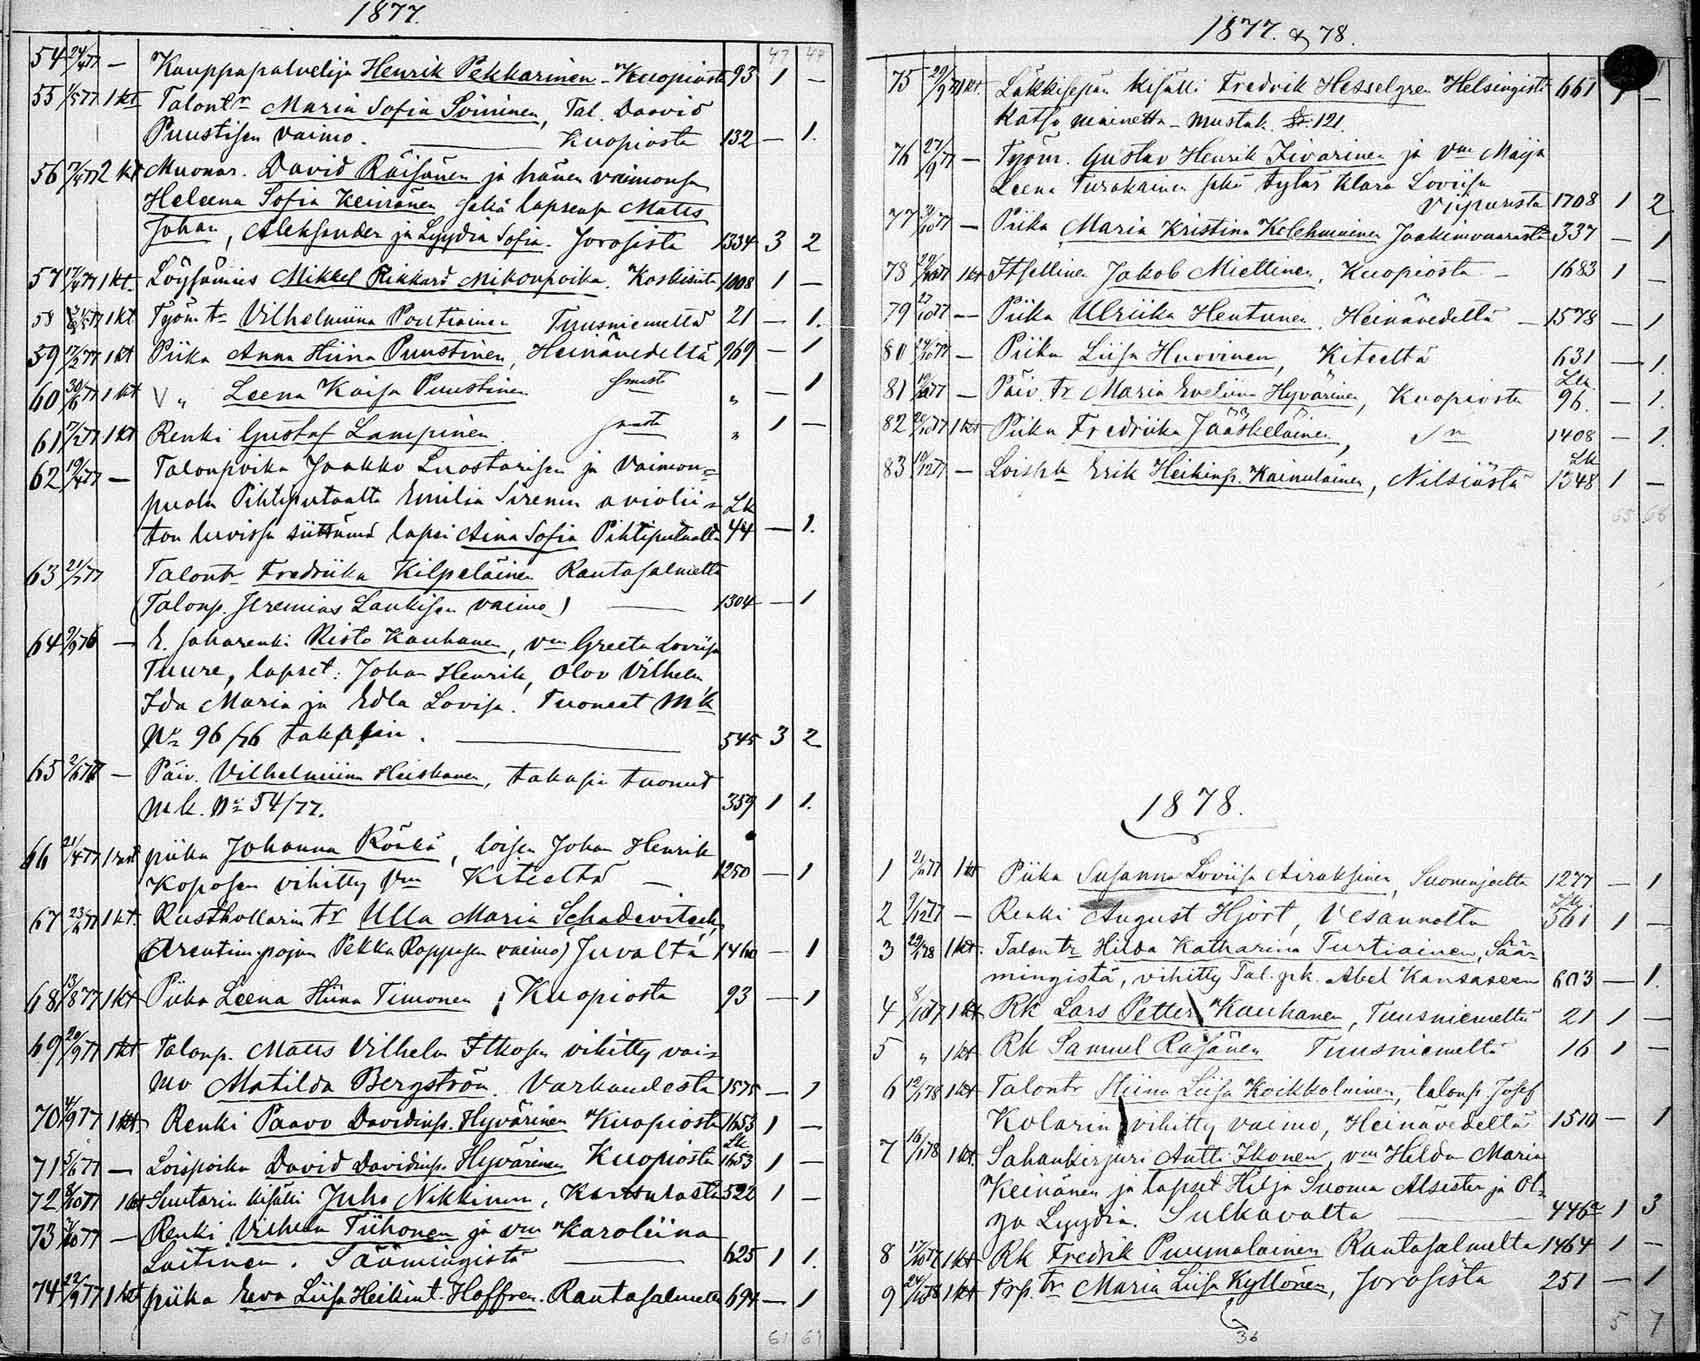 1877.
47 44
54 24/4 77 — Kauppapalvelija Henrik Pekkarinen - Kuopiosta 93 1 —
55 1/5 77 1 kt Talontr Maria Sofia Soininen, Tal. Daavid
Puustisen vaimo. Kuopiosta 132 — 1.
56 77 2 kt Muonar. David Räisänen ja hänen vaimonsa
Heleena Sofia Keinänen sekä lapsensa Matts
Johan, Aleksander ja Lyydia Sofia. Jorosista 1334 3 2
57 77 1 kt. Löysämies Mikkel Rikkard Mikonpoika. Koskisista 1008 1 —
58 77 1 kt Työm tr Vilhelmiina Poutiainen Tuusniemeltä 21 — 1.
59 77 1 kt Piika Anna Hiina Puustinen, Heinävedeltä 969 — 1
60 30/6 77 1 kt " Leena Kaisa Puustinen " — 1
61 77 1 kt Renki Gustaf Lampinen. " 1 —
62 77 — Talonpoika Jaakko Luostarisen ja vaimon=
puolen Pihtiputaalta Emilia Sirenin aviolii= Lk
ton luvissa siittämä lapsi Aina Sofia Pihtiputaalta 44 — 1.
63 77 Talontr Fredriika Kilpeläinen Rantasalmelta
(Talonp. Jeremias Laukisen vaimo) 1304 — 1
64 76 — E. saharenki Risto Kauhanen, vm Greeta Loviisa
Tuure, lapset: Johan Henrik, Olov Vilhelm
Ida Maria ja Edla Lovisa. Tuoneet Mk
No 96/76 takasin. 545 3 2
65 77 — Päiv. Vilhelmiina Heiskanen, takasin tuonut
mk. No 54/77. 359 1 1.
66 21/4 77 piika Johanna Röskä, loisen Johan Henrik
Koposen vihitty vm Kiteeltä — 1250 — 1
67 77 1 kt. Rusthollarin tr Ulla Maria Schadevitsch,
(Arentimpojan Pekka Roppusen vaimo) Juvalta 1460 — 1
68 13/8 77 1 kt Piika Leena Hiina Timonen, Kuopiosta 93 — 1
69 20/9 77 1 kt Talonp. Matts Vilhelm Itkosen vihitty vai=
mo Matilda Bergström. Varkaudesta 1575 — 1
70 77 1 kt Renki Paavo Davidinp. Hyvärinen Kuopiosta 1653 1 —
Lk.
71 77 — Loispoika David Davidinp. Hyvärinen Kuopiosta 1653 1 —
72 77 1 kt Suutarin kisälli Juho Nikkinen, Karttulasta 522 1 —
73 77 — Renki Vilhelm Tiihonen ja vm Karoliina
Laitinen. Sääminigistä 625 1 1.
74 22/9 77 1 kt piika Eeva Liisa Heikint. Hoffren. Rantasalmelta 694 — 1
61 61
1877. & 78.
75 29/9 77 1 kt. Läkkisepän kisälli Fredrik Hesselgren Helsingistä 661 1 —
Katso mainetta - mustak. S. 121.
76 27/9 77 — Työm. Gustav Henrik Iivarinen ja vm Maija
Leena Turakainen sekä tytär Klara Loviisa
Viipurista 1708 1 2
77 77 — Piika Maria Kristina Kolehmainen Jaakimvaarasta 337 — 1
78 77 1 kt Itsellinen Jakob Miettinen, Kuopiosta — 1683 1 —
79 27/10 77 — Piika Ulriika Hentunen, Heinävedeltä — 1578 — 1
80 77 — Piika Liisa Huovinen, Kiteeltä 631 — 1.
Lk.
81 77 — Päiv. tr Maria Eveliina Hyvärinen, Kuopiosta 96. — 1.
82 77 1 kt Piika Fredriika Jääskeläinen, Sm 1408 — 1.
Lk
83 77 — Loisrk Erik Heikinp. Kainulainen, Nilsiästä 1348 1 —
65 66
1878.
1 77 1 kt Piika Susanna Loviisa Airaksinen, Suonenjoelta 1277 — 1
Lk.
2 77 — Renki August Hjort, Vesannolta 561 1 —
3 78 1 kt. Talon tr Hilda Katharina Turtiainen, Sää=
mingistä, vihitty Tal. prk. Abel Kansaseen 603 — 1.
4 77 1 kt Rk Lars Petter Kauhanen, Tuusniemeltä 21 1 —
5 " 1 kt Rk Samuel Räsänen Tuusniemeltä 16 1 —
6 78 1 kt Talontr Hiina Liisa Koikkalainen, talonp. Josef
Kolarin vihitty vaimo, Heinävedeltä 1510 — 1
7 16/1 78 1 kt. Sahankirjuri Antti Ikonen, vm Hilda Maria
Keinänen ja lapset Hilja Suoma Alsista ja Ol=
ga Lyydia. Sulkavalta 446a 1 3
8 77 1 kt Rk Fredrik Puumalainen Rantasalmelta 1464 1 —
9 78 1 kt Trp. tr Maria Liisa Kyllönen, Jorosista 251 — 1
36
5 7